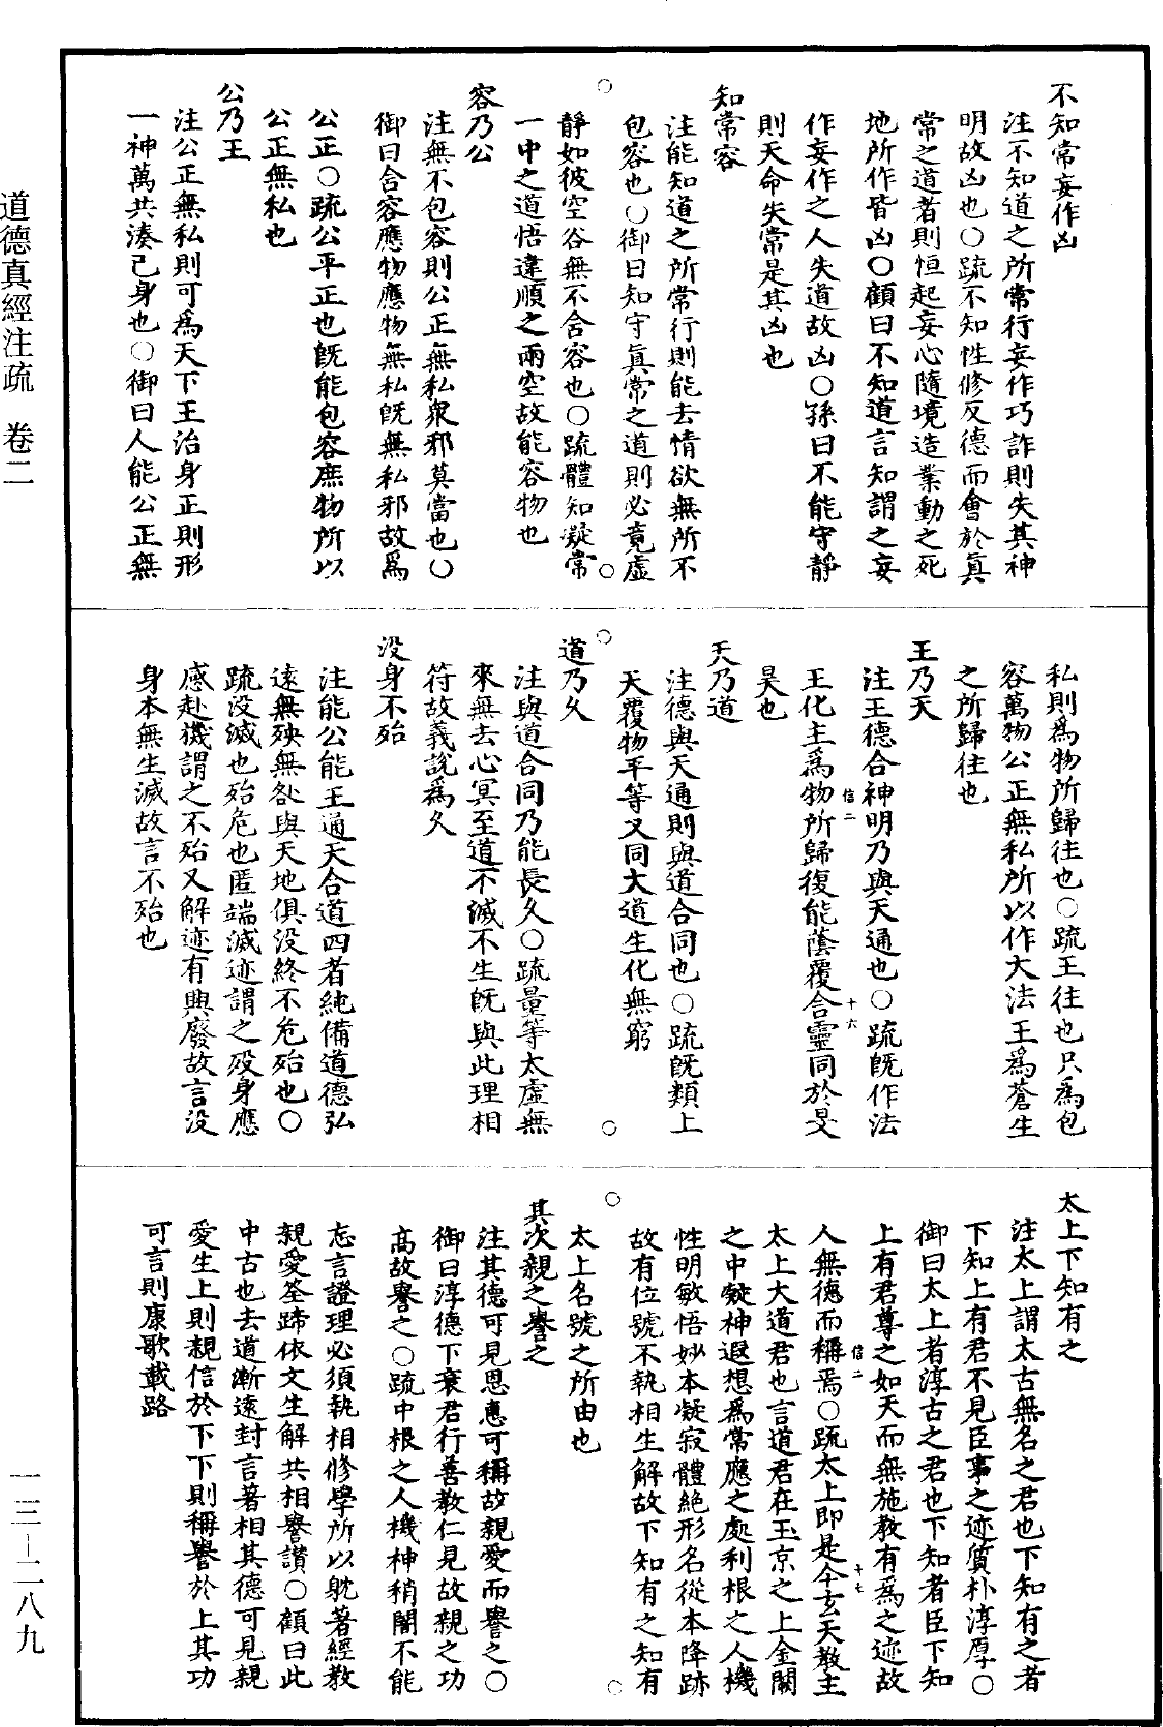 不知常妄作凶
注不知道之所常行妄作巧詐則失其神
明故凶也○疏不知性修反德而會於眞
常之道者則恒起妄心隨境造業動之死
地所作皆凶○顧曰不知道言知謂之妄
作妄作之人失道故凶○孫曰不能守靜
則天命失常是其凶也
知常容
注能知道之所常行則能去情欲無所不
包容也○御曰知守眞常之道則必竟虛
靜如彼空谷無不含容也○疏體知凝常
一中之道悟違順之兩空故能容物也
容乃公
注無不包容則公正無私衆邪莫當也○
御曰含容應物應物無私既無私邪故爲
公正○疏公平正也既能包容庶物所以
公正無私也
公乃王
注公正無私則可爲天下王治身正則形
一神萬共湊己身也○御曰人能公正無
私則爲物所歸往也○疏王往也只爲包
容萬物公正無私所以作大法王爲蒼生
之所歸往也
王乃天
注王德合神明乃與天通也○疏既作法
王化主爲物所歸復能蔭覆含靈同於旻
昊也
天乃道
注德與天通則與道合同也○疏既類上
天覆物平等又同大道生化無窮
道乃久
注與道合同乃能長久○疏量等太虛無
來無去心冥至道不滅不生既與此理相
符故義説爲久
没身不殆
注能公能王通天合道四者純備道德弘
遠無殃無咎與天地俱没終不危殆也○
疏没滅也殆危也匿端滅迹謂之殁身應
感赴機謂之不殆又解迹有興廢故言没
身本無生滅故言不殆也
信二
十六
太上下知有之
注太上謂太古無名之君也下知有之者
下知上有君不見臣事之迹質朴淳厚○
御曰太上者淳古之君也下知者臣下知
上有君尊之如天而無施教有爲之迹故
人無德而稱焉○疏太上即是今玄天教主
太上大道君也言道君在玉京之上金闕
之中凝神遐想爲常應之處利根之人機
性明敏悟妙本凝寂體絶形名從本降跡
故有位號不執相生解故下知有之知有
太上名號之所由也
其次親之譽之
注其德可見恩惠可稱故親愛而譽之○
御曰淳德下衰君行善教仁見故親之功
高故譽之○疏中根之人機神稍闇不能
忘言證理必須執相修學所以躭著經教
親愛筌蹄依文生解共相譽讚○顧曰此
中古也去道漸遠封言著相其德可見親
愛生上則親信於下下則稱譽於上其功
可言則康歌載路
信二
十七
道德真經注疏　卷二
一三—二八九